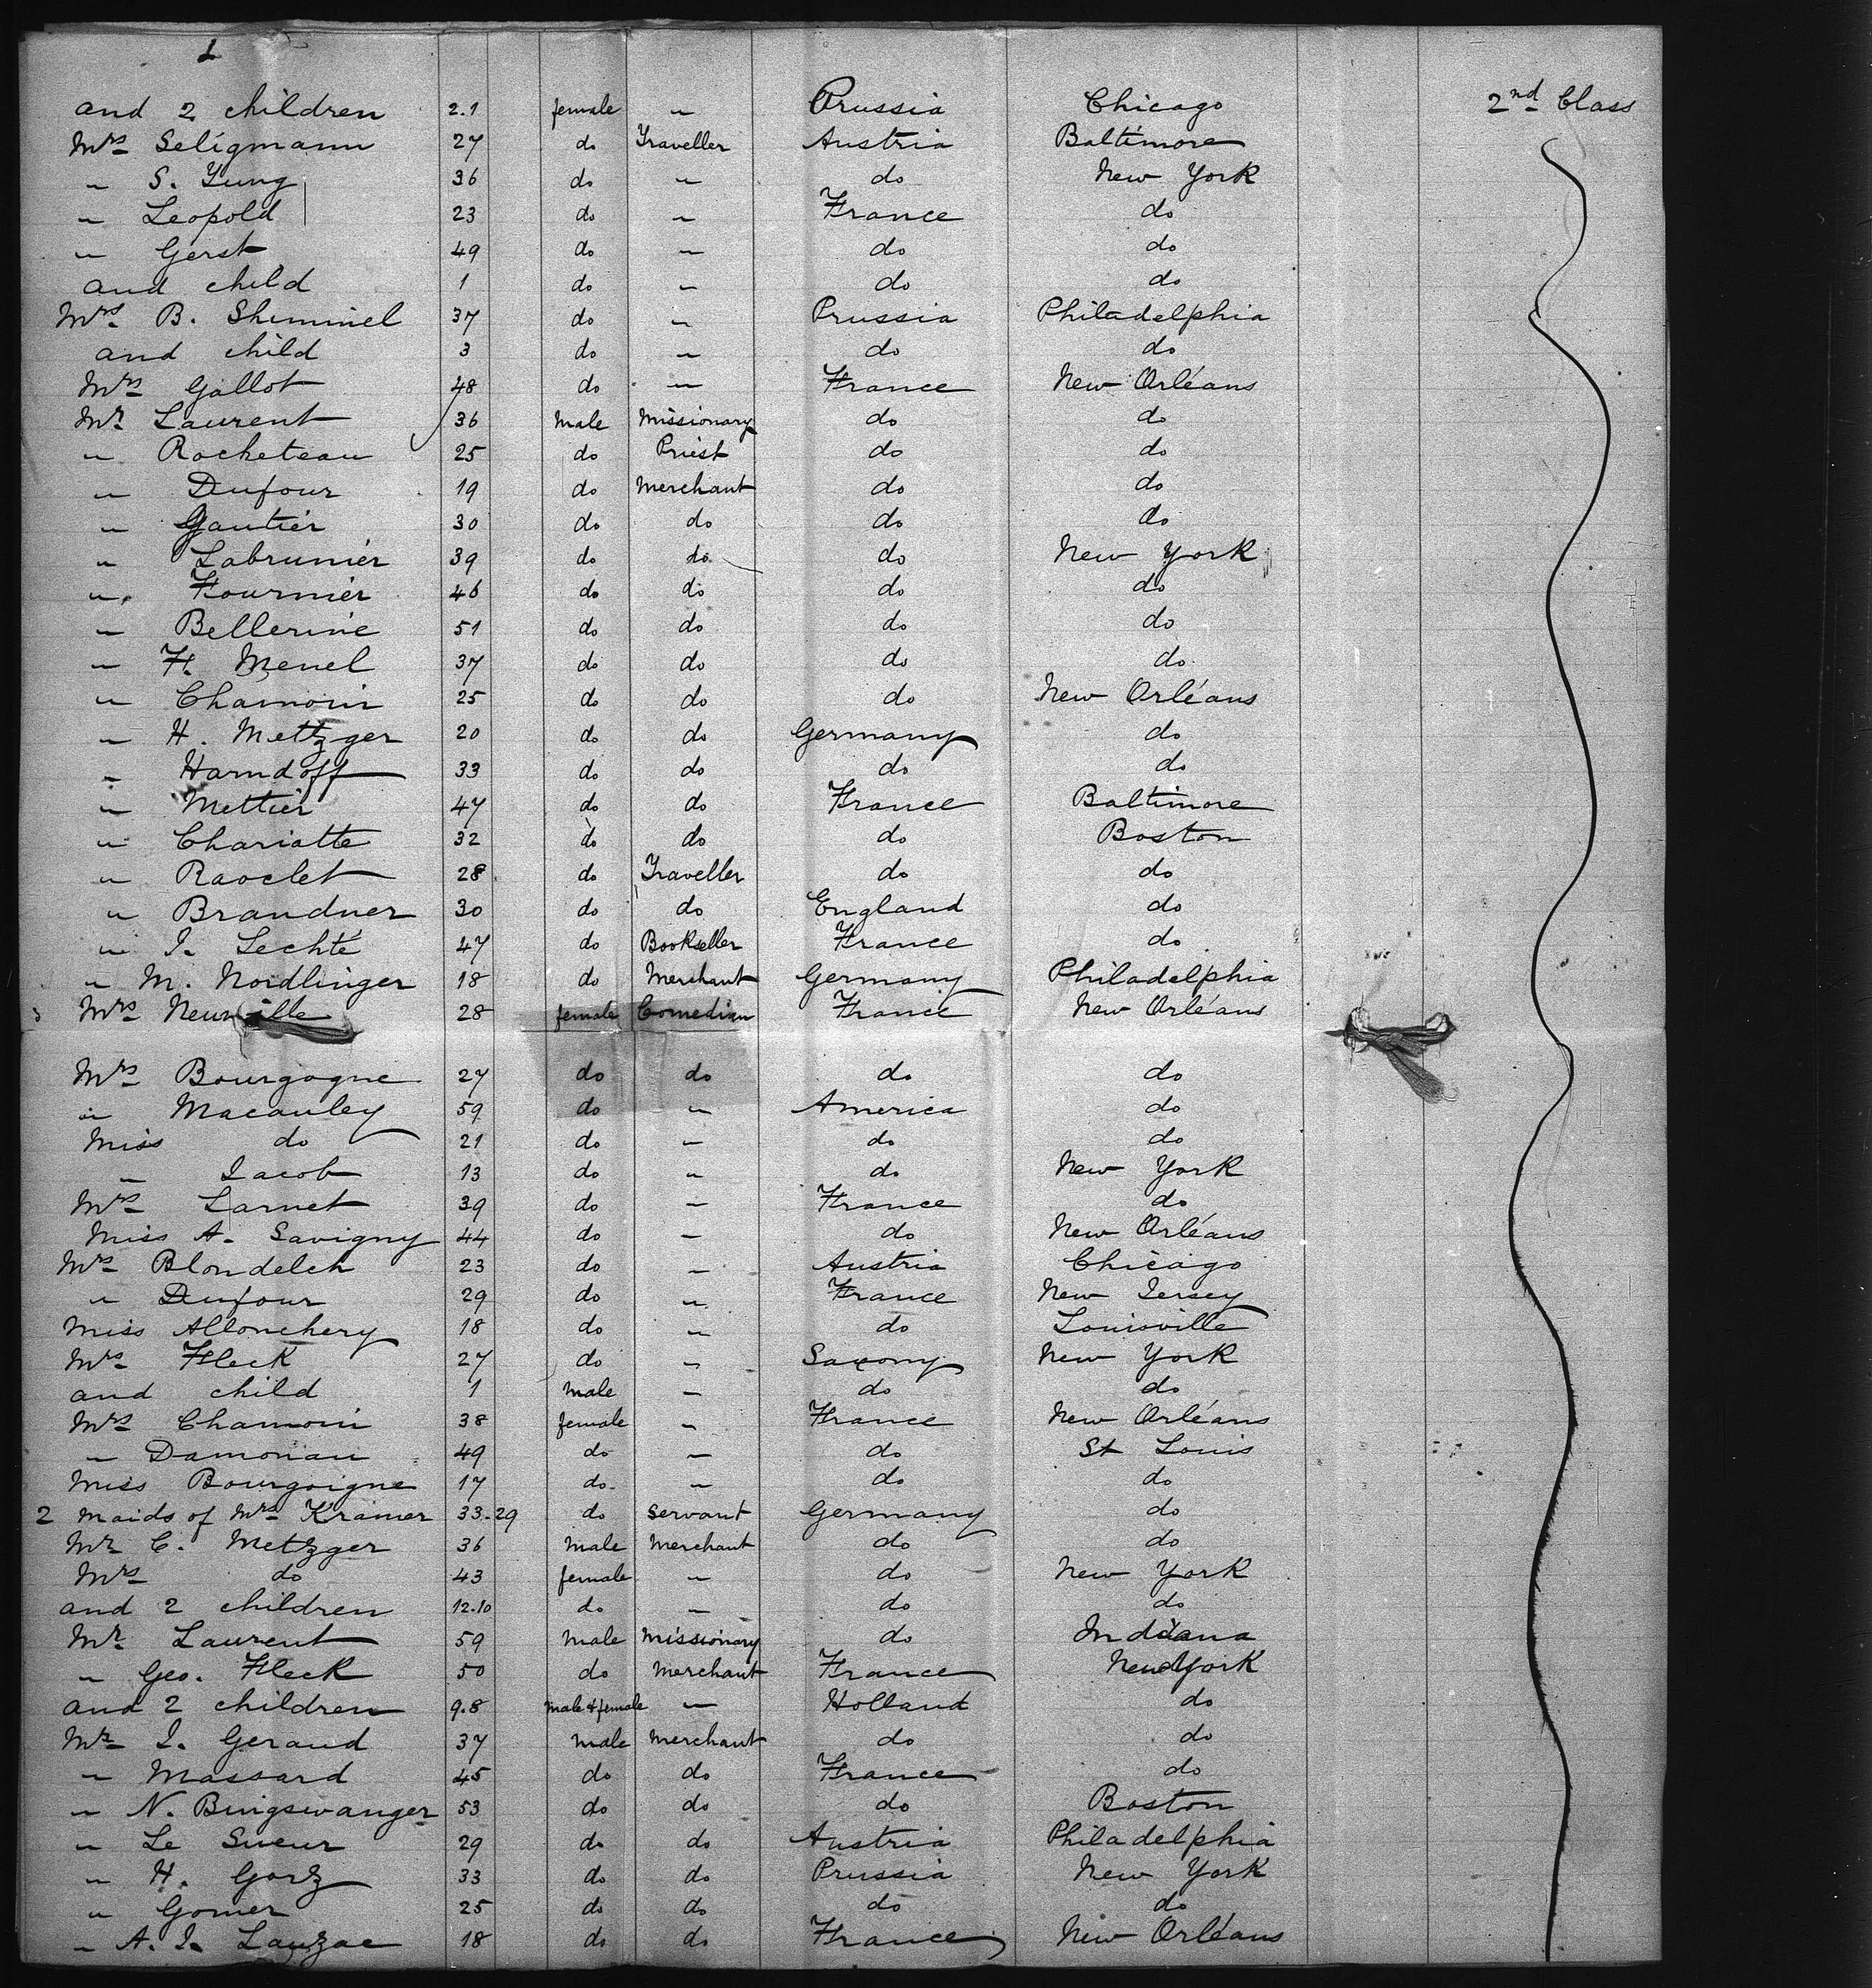 2nd Class
and 2 children 2.1 female " Prussia Chicago
Mrs Seligmann 27 do Traveller Austria Baltimore
" S. Jung 36 do " do New York
" Leopold 23 do " France do
" Gerst 49 do " do do
and child 1 do " do do
Mrs B. Shimmel 37 do " Prussia Philadelphia
and child 3 do " do do
Mrs Gallot 48 do " France New Orléans
Mr Laurent 36 Male Missionary do do
" Rocheteau 25 do Priest do do
" Dufour 19 do Merchant do do
" Gautier 30 do do do do
" Labrunier 39 do do do New York
" Fournier 46 do do do do
" Bellerive 51 do do do do
" H. Menel 37 do do do do
" Chamoin 25 do do do New Orléans
" H. Mettzger 20 do do Germany do
" Harndoff 33 do do do do
" Mettier 47 do do France Baltimore
" Chariatte 32 do do do Boston
" Raoclet 28 do Traveller do do
" Brandner 30 do do England do
" J. Lechté 47 do Bookseller France do
" M. Nordlinger 18 do Merchant Germany Philadelphia
Mrs Neuville 28 female Comedian France New Orléans
Mrs Bourgogne 27 do do do do
" Macauley 59 do " America do
Miss do 21 do " do do
" Jacob 13 do " do New York
Mrs Larnet 39 do " France do
Miss A. Savigny 44 do " do New Orléans
Mrs Blondelch 23 do " Austria Chicago
" Dufour 29 do " France New Jersey
Miss Allonchery 18 do " do Louisville
Mrs Fleck 27 do " Saxony New York
and child 1 Male " do do
Mrs Chamoin 38 female " France New Orléans
" Damonau 49 do " do St Louis
Miss Bourgoigne 17 do " do do
2 maids of Mrs Kramer 33.29 do servant Germany do
Mr C. Metzger 36 Male Merchant do do
Mrs do 43 female " do New York
and 2 children 12.10 do " do do
Mr Laurent 59 Male Missionary do Indiana
" Geo. Fleck 50 do Merchant France New York
and 2 children 9.8 male & female " Holland do
Mr J. Geraud 37 Male Merchant do do
" Massard 45 do do France do
" N. Bingswanger 53 do do do Boston
" Le Sueur 29 do do Austria Philadelphia
" H. Gorz 33 do do Prussia New York
" Gomer 25 do do do do
" A. J. Lauzac 18 do do France New Orléans